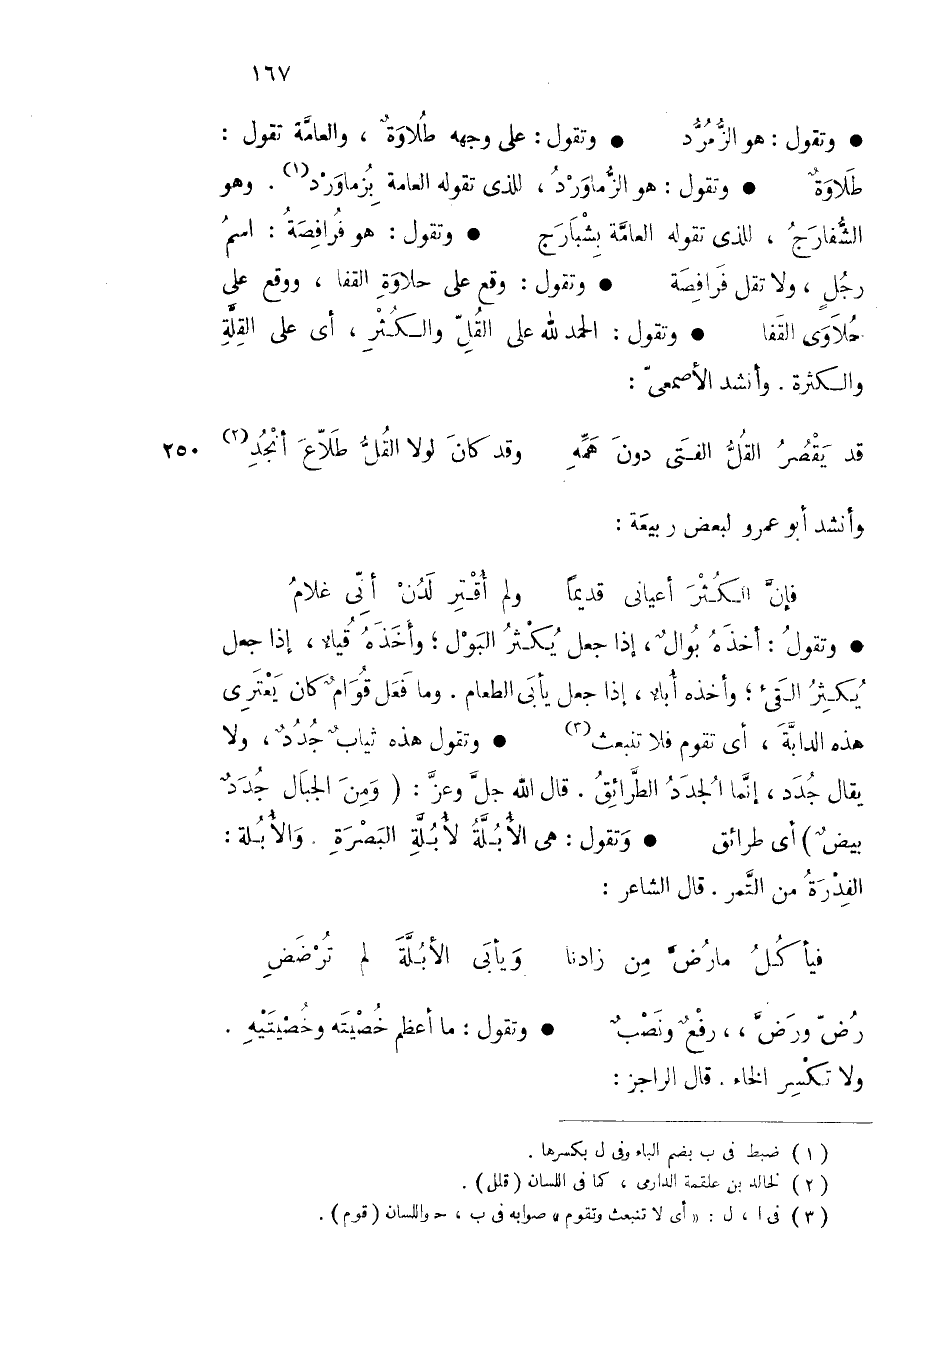 ١٦٧
● وتقول : هو الزُّمُرُّد ● وتقول : على وجهه طُلاوَةٌ ، والعامَّة تقول :
طَلَاوَةٌ ● وتقول : هو الزُّماوَرْدُ ، للذى تقوله العامة بِزُماوَرْد(١) . وهو
الشُّفارَجُ ، للذى تقوله العامَّة بِشْبَارَج ● وتقول : هو فُرافِصَةُ : اسمُ
رجُلٍ ، ولا تقل فَرافِصَة ● وتقول : وقع على حلاوَةِ القفا ، ووقع على
حُلَاوَى القَفا ● وتقول : الحمد لله على القُلِّ والكُثْرِ ، أى على القِلَّةِ
والكثرة . وأنشد الأصمعىّ :
قد يَقْصُرُ القُلُّ الفتَى دونَ هَمِّهِ وقد كانَ لولا القُلُّ طَلّاعَ أنْجُدِ(٢) ٢٥٠
وأنشد أبو عمرو لبعض ربيعَة :
فإنَّ الكُثْرَ أعيانى قديماً ولم أُقْتِر لَدُنْ أنِّى غلامُ
● وتقولُ : أخذَهُ بُوالٌ ، إذا جعل يُكْثرُ البَوْل ؛ وأخَذَهُ قُياء ، إذا جعل
يُكثِرُ القَىْء ؛ وأخذه أُباء ، إذا جعل يأبَى الطعام . وما فَعَل قُوَامٌ كان يَعْتَرِى
هذه الدابَّةَ ، أى تقوم فلا تنبعث(٣) ● وتقول هذه ثيابٌ جُدُدٌ ، ولا
يقال جُدَد ، إنَّما الجُدَدُ الطَّرائقُ . قال الله جلَّ وعزَّ : ( وَمِنَ الجبَالِ جُدَدٌ
بيضٌ ) أى طرائق ● وَتقول : هى الأُبُلَّةُ لأُبُلَّةِ البَصْرَةِ . وَالأُبُلة :
الفِدْرَةُ من التَّمر . قال الشاعر :
فيأكُلُ مارُضَّ مِن زادنا وَيأبَى الأبُلَّةَ لم تُرْضَضِ
رُضّ ورَضَّ ، ، رفْعٌ ونَصْبٌ ● وتقول : ما أعظم خُصْيَتَه وخُصْيَتَيْهِ .
ولا تكْسِر الخاء . قال الراجز :
(١) ضبط فى ب بضم الباء وفى ل بكسرها .
(٢) لخالد بن علقمة الدارمى ، كما فى اللسان ( قلل ) .
(٣) فى ا ، ل : « أى لا تنبعث وتقوم » صوابه فى ب ، حـ واللسان ( قوم ) .